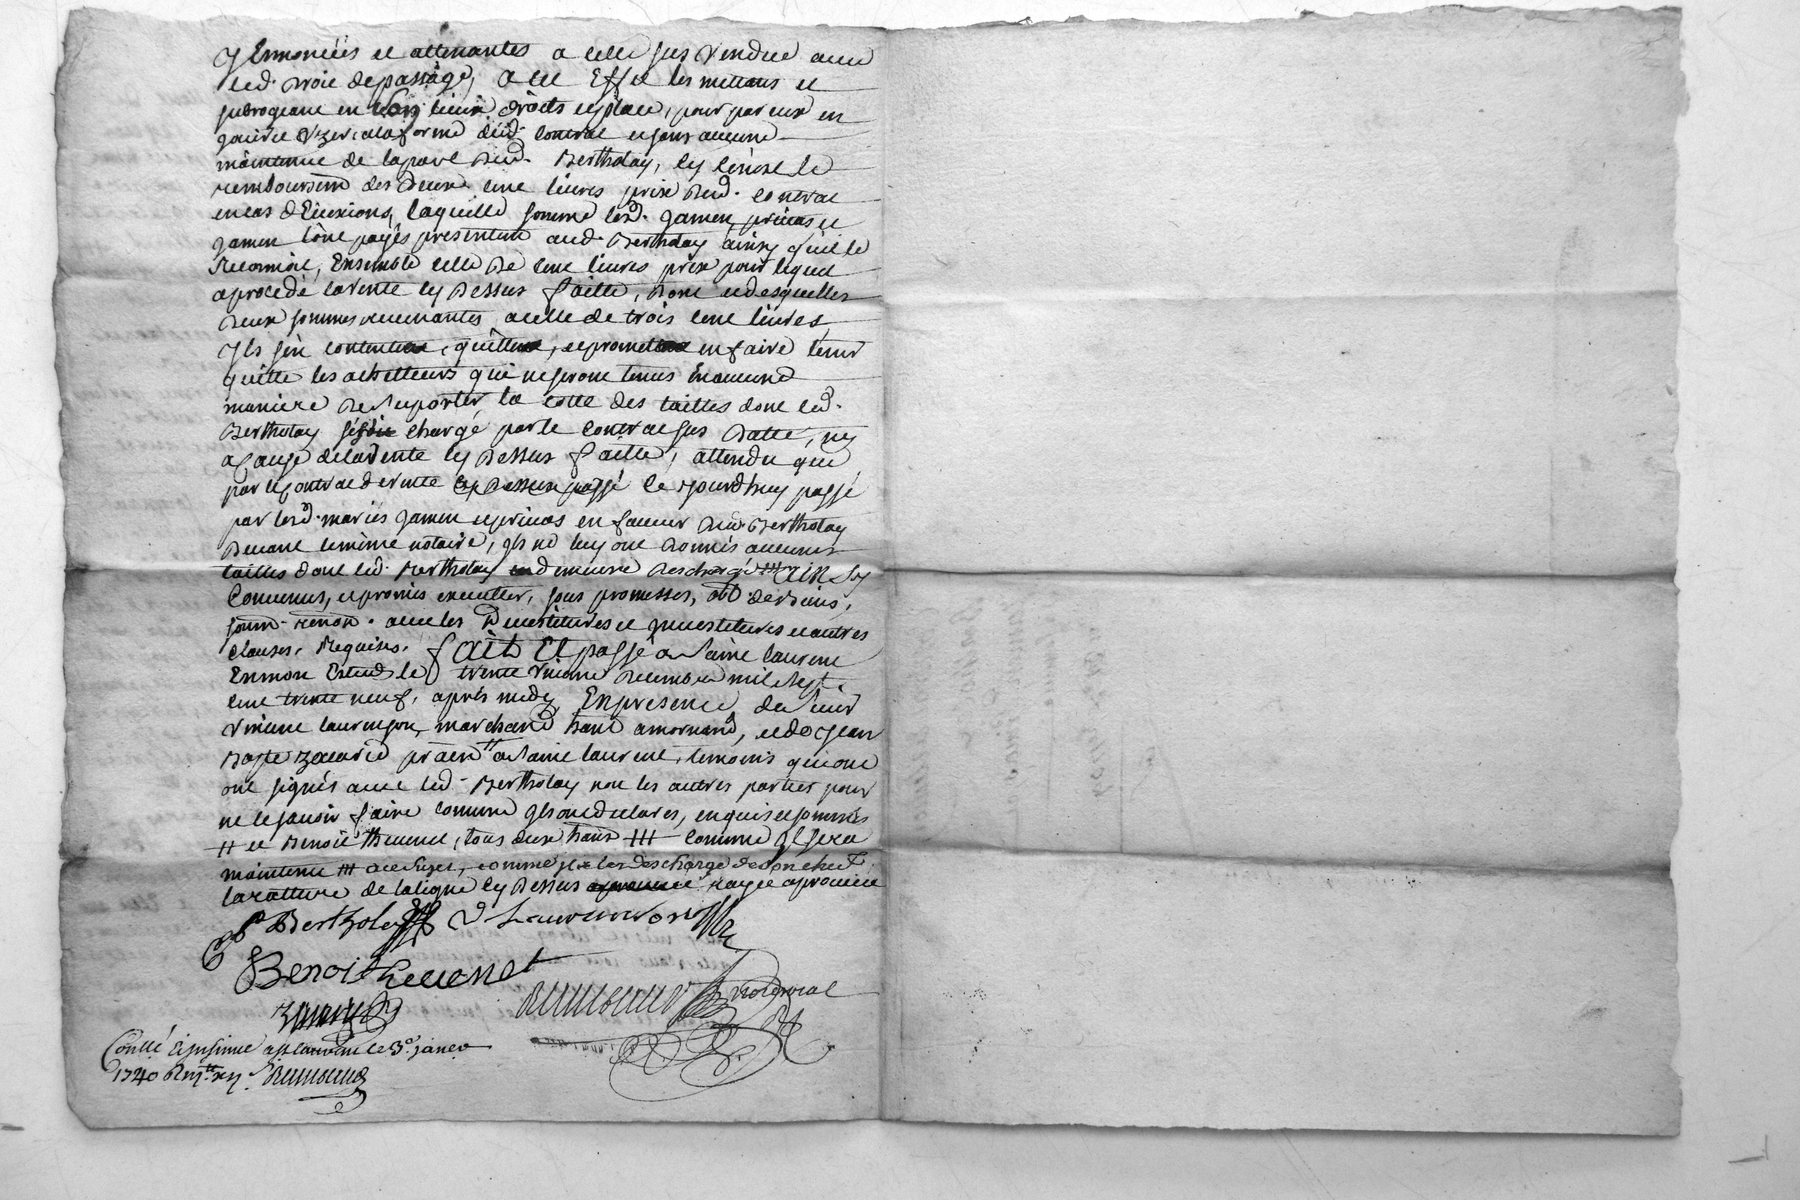 y Enoncéés et attenantes a celle sus vendue avec
led. droit de passage, a cet Effet les mettans et
subrogeant en son lieux droits et place, pour par eux en
jouir et Uzer, a la forme dud. contrat et sans aucune
maintenue de la part dud. Bertholay, ny
remboursem des deux cent livres prix dud. contrat
en cas d'Evictions, laquelle somme lesd. jamen, privas et
jamen l'ont payés presentemt aud. Bertholay ainsy qu'il le
Reconnoit, Ensemble celle de cent livres prix pour lequel
a procedé la vente cy Dessus faitte, dont et desquelles
deux sommes revenantes a celle de trois cent livres
Ils s'en contente, quitte, et promet en faire tenir
quitte les achetteurs qui ne seront tenus En aucune
maniere de suporter la cotte des tailles dont led.
Bertholay chargé par le contrat sus Datté, ny
a cause de la vente cy Dessus faitte, attendu que
par le contrat de vente cy Dessus passé ce jourdhuy passé
par lesd. mariés jamen et privas en faveur dud. Bertholay
Devant le même notaire, ils ne luy ont donnés aucunes
tailles dont led. Bertholay demeure deschargé ||| AINSY
Convenus, et promis executter, sous promesses, obl. de biens,
soum. renon. avec les Devestitures et jnvestitures et autres
clauses, Requises. fait Et passé a Saint laurent
En mon Etude le trente Unieme decembre mil sept.
cent trente neuf, aprés midy, En presence de Sieur
Vincent laurençon, marchand habt a mornand, et de jean
Bapte Zacarie pratn. habtt a Saint laurent, temoins qui ont
ont signés avec led. Bertholay non les autres parties pour
ne le scavoir faire comme ils ont declarés, enquis et sommés
|| et Benoit thevenet, tous deux habts ||| comme jl sera
maintenu ||| au sujet, comme jl les descharge de son chef
la ratture de la ligne cy Dessus rayée aprouvée
Bertholay Laurenson
Benoit thevenet
Zacarie
notroyal
Contllé Et jnsinué a st laurent le 3e janer
1740